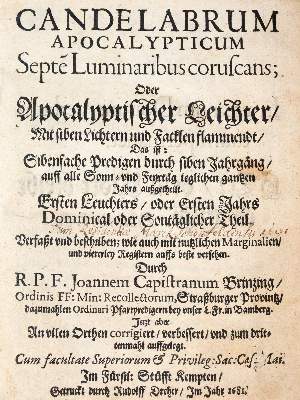 CANDELABRUM
APOCALYPTICUM
Septē Luminaribus coruscans;
Oder
Apocalyptischer Leichter/
Mit siben Liechtern und Facklen flammendt/
Das ist:
Sibenfache Predigen durch siben Jahrgäng/
auff alle Sonn- und Feyrtäg jeglichen gantzen
Jahrs außgetheilt.
Ersten Leuchters/ oder Ersten Jahrs
Dominical oder Sontäglicher Theil.
Verfaßt und beschriben; wie auch mit nutzlichen Marginalien/
und viererley Registern auffs beste versehen.
Durch
R. P. F. Joannem Capistranum Brinzing/
Ordinis FF: Min: Recollectorum, Straßburger Provintz/
dazumahlen Ordinari Pfarrpredigern bey unser L. Fr. in Bamberg.
Jetzt aber
An vilen Orthen corrigiert/ verbessert/ und zum drit-
tenmahl auffgelegt.
Cum facultate Superiorum & Privileg: Sac: Cæs: Mai.
Im Fürstl: Stüfft Kempten/
Getruckt durch Rudolff Dreher/ Im Jahr 1681.